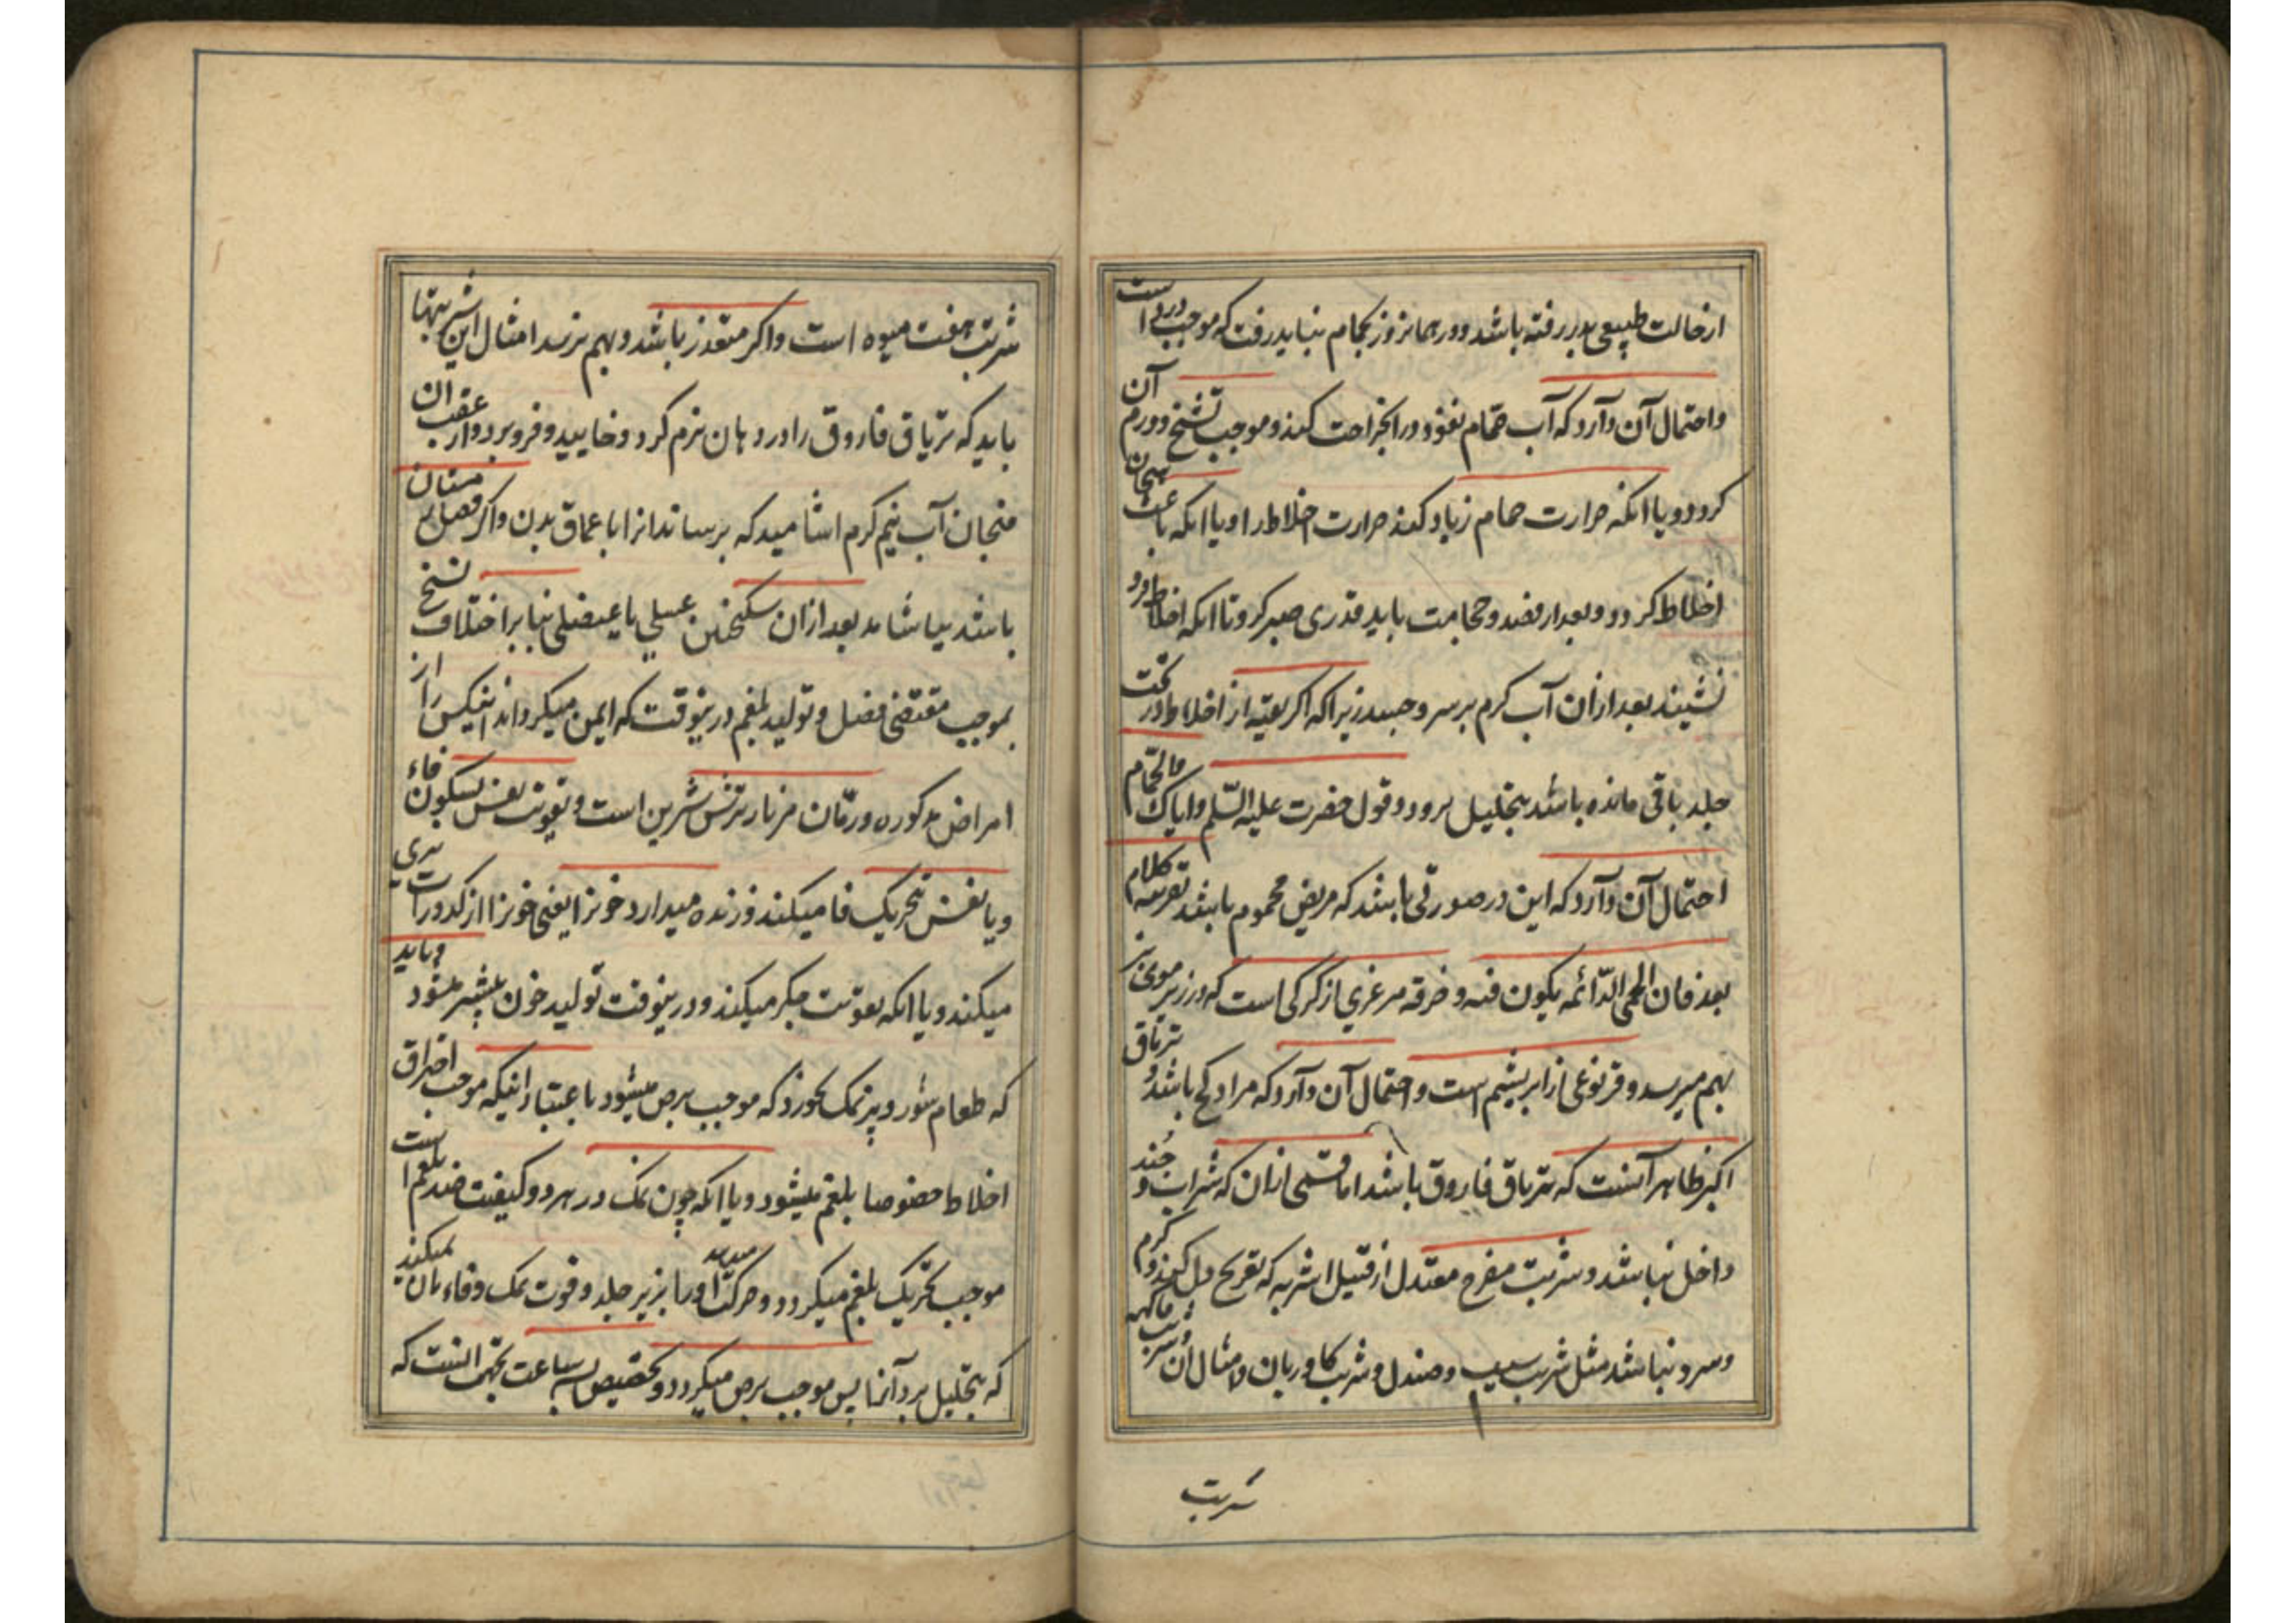 از حالت طبیعی بدر رفته باشد و در همانروز بحمام نباید رفت که موجب دردی است
و احتمال آن دارد که آب حمام نفوذ در انجراحت کند و موجب تشنج و ورم آن
کردد و یا انکه حرارت حمام زیاد کند حرارت اخلاط را و یا انکه باعث هیجان
اخلاط کردد و بعد از فصد و حجامت باید قدری صبر کرد تا انکه اخلاط فرو
نشیند بعد ازان آب کرم بر سر و جسد زیرا که اکر بقیه از اخلاط در تحت
جلد باقی مانده باشد بتحلیل برود و قول حضرت علیه السّلم و ایاک و الحمّام
احتمال آن دارد که این در صورتی باشد که مریض محموم باشد بقرینه کلام
بعد فان الحمی الدّائمه یکون فیه و خرقه مرعزی از کرکی است که در زیر موی بز
بهم میرسد و قز نوعی از ابریشم است و احتمال آن دارد که مراد کج باشد و تریاق
اکبر ظاهر آنست که تریاق فاروق باشد اما قسمی ازان که شراب و جند
داخل نباشد و شربت مفرح معتدل از قبیل اشربه که تفریح دل کند و کرم
و سرد نباشد مثل شربت سیب و صندل و شربت کاوزبان و امثال آن و شربت فاکهه
شربت
شربت هفت میوه است و اکر متعذر باشد و بهم نرسد امثال این شربتها
باید که تریاق فاروق را در دهان نرم کرد و خایید و فرو برد و از عقب ان
فنجان آب نیم کرم اشامید که برساند انرا باعماق بدن و اکر فصل زمستان
باشد بیاشامد بعد ازان سکنجبین عسلی یا عنصلی بنا بر اختلاف نسخ
بموجب مقتضی فصل و تولید بلغم درینوقت که ایمن میکرداند اینکس را از
امراض مذکوره و رمّان مز نار ترش شیرین است و تقویت نفس بسکون فاء
و یا نفس بتحریک فا میکند و زنده میدارد خونرا یعنی خونرا از کدورات بری
میکند و یا انکه تقویت جکر میکند و درینوقت تولید خون بیشتر میشود و باید
که طعام شور و پر نمک نخورد که موجب برص میشود باعتبار اینکه موجب احتراق
اخلاط خصوصا بلغم میشود و یا انکه چون نمک در هر دو کیفیت ضد بلغم است
موجب تحریک بلغم میکردد و حرکت میدهد او را بزیر جلد و قوت نمک وفاء بان نمیکند
که بتحلیل برد آنرا پس موجب برص میکردد و تخصیص بساعت بجهت انست که